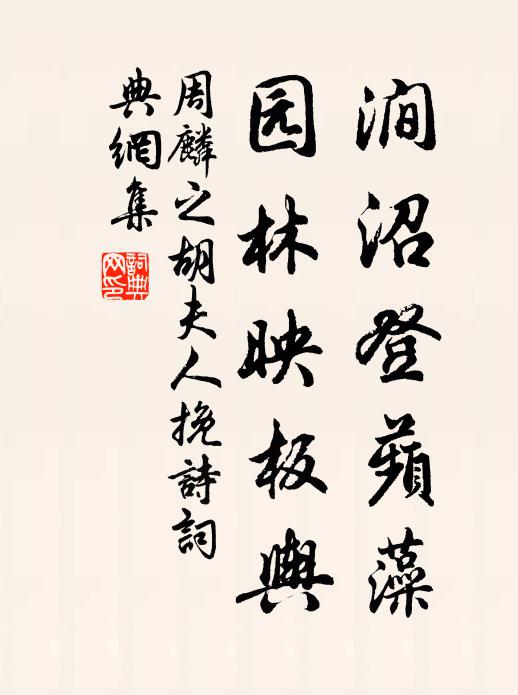 涧沼登蘋藻
园林映板輿
周麟之胡夫人挽詩詞
典網集
詞典网印